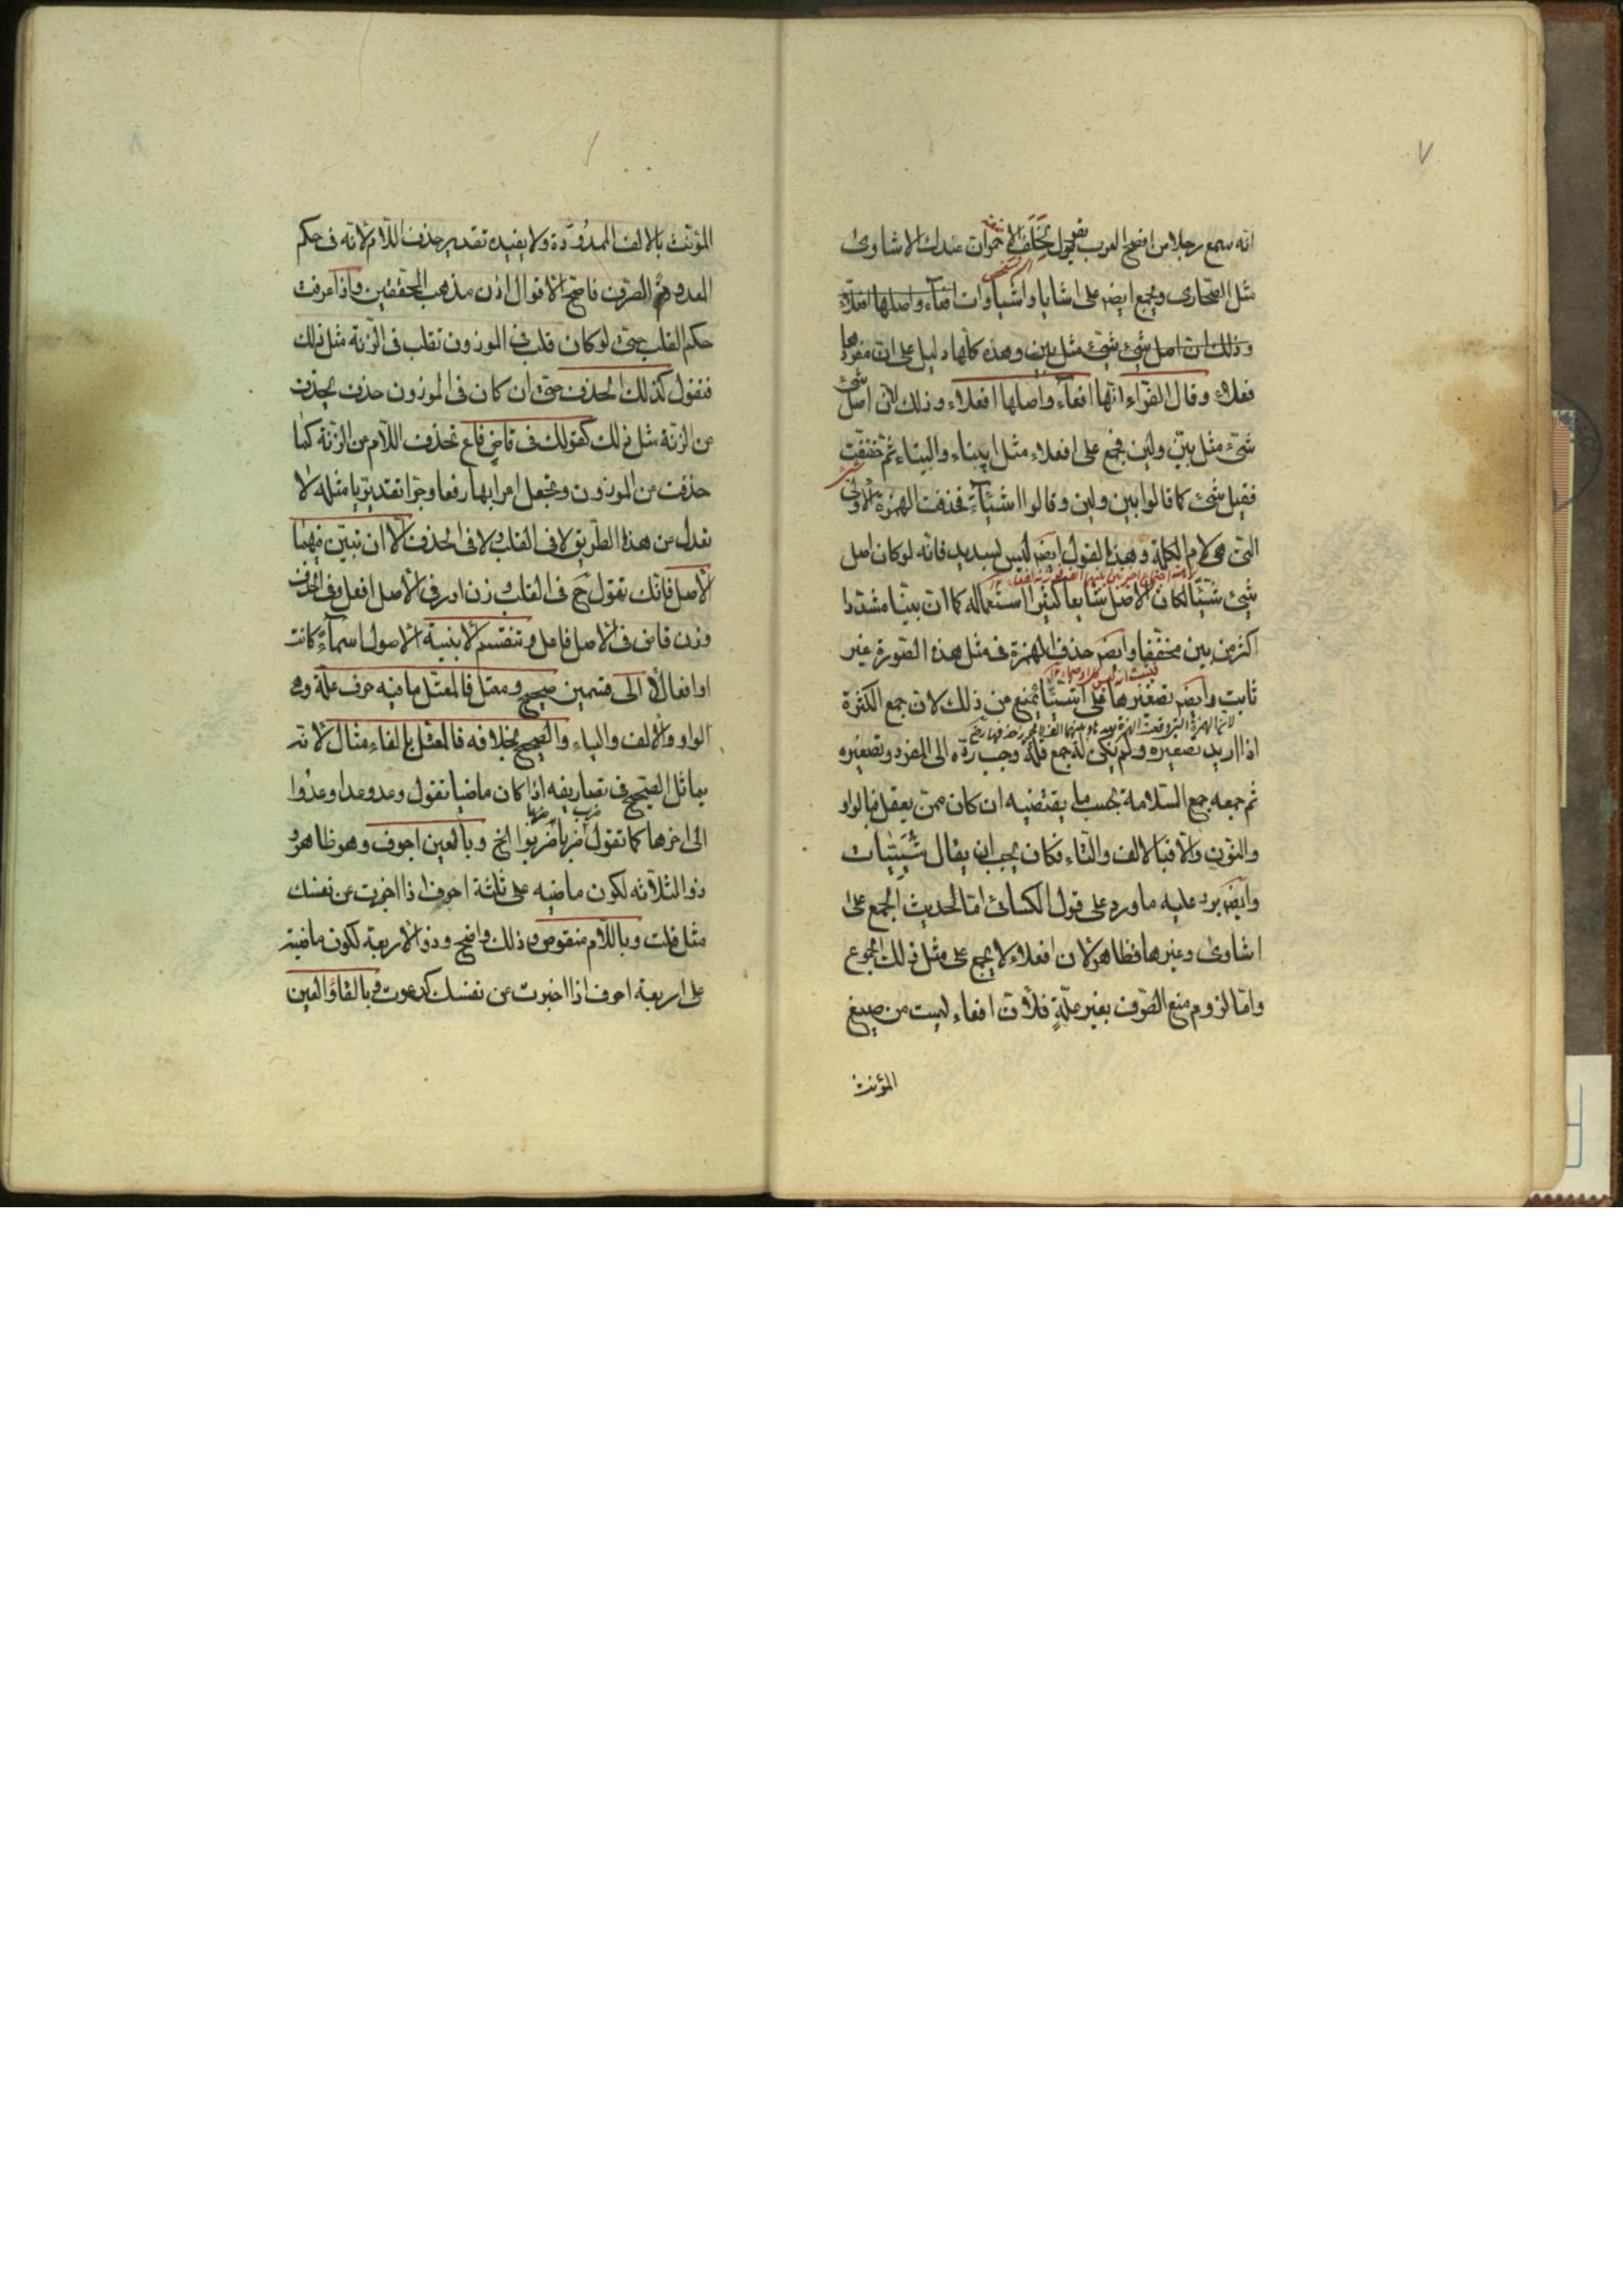 ٧
انه سمع رجلا من افصح العرب يقول لخلف الاحمر ان عندك لاشاوى
مثل الصحارى ويجمع ايضر على اشايا واشياوات افعآء واصلها افعلاء
وذلك ان اصل شئ شيّئ مثل بين وهذه كلها دليل على ان مفردها
فعلاء وقال الفرّاء انها افعآء واصلها افعلاء وذلك لان اصل شئ
شيّء مثل بيّن وليّن فجمع على افعلاء مثل ابيناء والبناء ثم خففت
فقيل شئ كما قالوا بين ولين وقالوا اشيئآء فحذفت الهمزة الاولى
التى هى لام الكلمة وهذا القول ايضر ليس بسديد فانه لو كان اصل
شيئ شيّئا لكان الاصل شايعا كثيرا استعماله كما ان بيّنا مشددا
اكثر من بين مخففا وايضر حذف الهمزة فى مثل هذه الصورة غير
ثابت وايضر تصغيرها على اشيّئا يمنع من ذلك لان جمع الكثرة
اذا اريد تصغيره ولم يكن له جمع قلة وجب ردّه الى المفرد وتصغيره
ثم جمعه جمع السّلامة بحسب ما يقتضيه ان كان ممن يعقل فبالواو
والنون والّا فبالالف والتاء فكان يجب ان يقال شييئات
وايضر يرد عليه ما ورد على قول الكسائى امّا لحديث الجمع على
اشاوى وغيرها فظاهر لان افعلاء لا يجمع على مثل ذلك الجموع
وامّا لزوم منع الصّرف بغير علّةٍ فلانّ افعاء ليست من صيغ
المؤنث
المؤنّث بالالف الممدودة ولا يفيده تقدير حذف اللام لانه فى حكم
المعدوم الصرف فاصح الاقوال اذن مذهب المحققين واذا عرفت
حكم القلب حتى لو كان قلب فى الموزون تقلب فى الزّنة مثل ذلك
فنقول كذلك الحذف حتى ان كان فى الموزون حذف يحذف
من الزنة مثل ذلك كقولك فى قاضٍ فاعٍ تحذف اللّام من الزّنة كما
حذفت من الموزون وتجعل اعرابها رفعا وجرا تقديريا مثله لا
تعدل من هذا الطّريق لا فى القلب ولا فى الحذف الّا ان تبيّن فيهما
الاصل فانّك تقول ح فى القلب وزن ادر فى الاصل افعل وفى الحذف
وزن قاض فى الاصل فاعل وتنقسم الابنية الاصول اسمآءً كانت
او افعالًا الى قسمين صحيح ومعتل فالمعتل ما فيه حرف علّة وهى
الواو والالف والياء والصحيح بخلافه فالمعتل بالفاء مثال لانه
يماثل الصّحيح فى تصاريفه اذا كان ماضيا تقول وعد وعدا وعدوا
الى اخرها كما تقول ضرب ضربا ضربوا الخ وبالعين اجوف وهو ظاهر و
ذو الثلاثه لكون ماضيه على ثلثة احرف اذا اخبرت عن نفسك
مثل قلت وباللّام منقوص وذلك واضح وذو الاربعة لكون ماضيه
على اربعة احرف اذا اخبرت عن نفسك كدعوت وبالفاء والعين